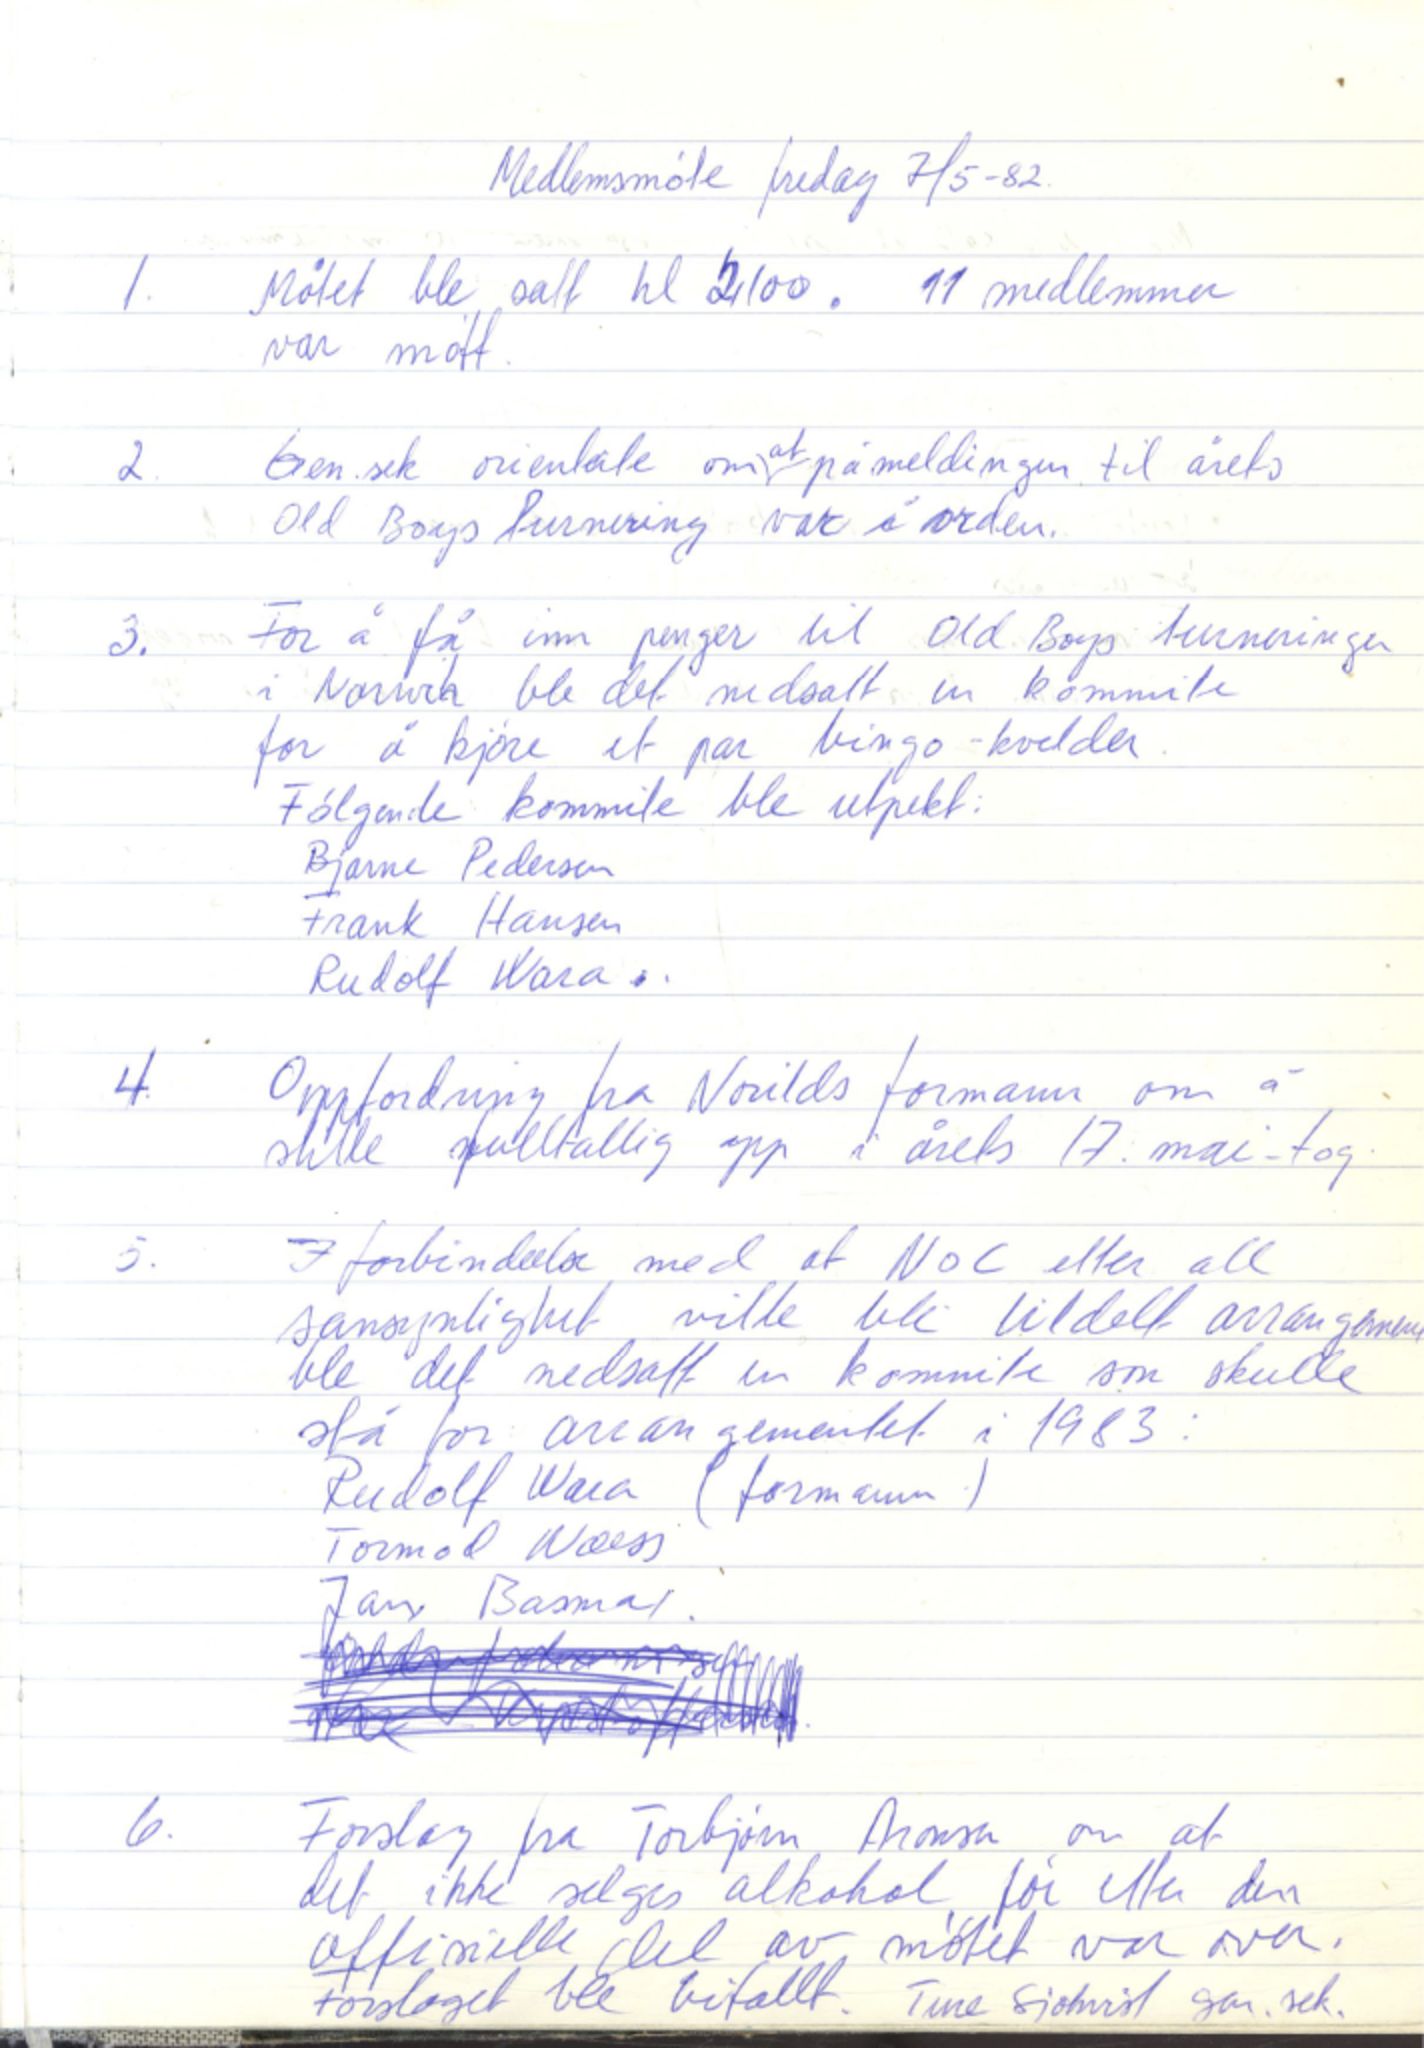 Medlemsmöte fredag 7/5-82.
1. Mötet ble satt kl 2100. 11 medlemmer
var mött.
2. Gen.sek orienterte om at påmeldingen til årets
Old Boys turnering var i orden.
3. For å få inn penger til Old Boys turneringen
i Norwich ble det nedsatt en kommite
for å kjöre et par bingo-kvelder.
Fölgende kommite ble utpekt:
Bjarne Pedersen
Frank Hansen
Rudolf Wara.
4. Oppfordring fra Norilds formann om å
stille fulltallig opp i årets 17. mai-tog.
5. I forbindelse med at NOC etter all
sansynlighet ville bli tildelt arrangement
ble det nedsatt en kommite som skulle
stå for arrangementet i 1983:
Rudolf Wara (formann)
Tormod Næss
Jan Basmar.
6. Forslag fra Torbjörn Aronsen om at
det ikke selges alkohol för etter den
offisielle del av mötet var over.
Forslaget ble bifallt. Ture Sjokvist gen.sek.